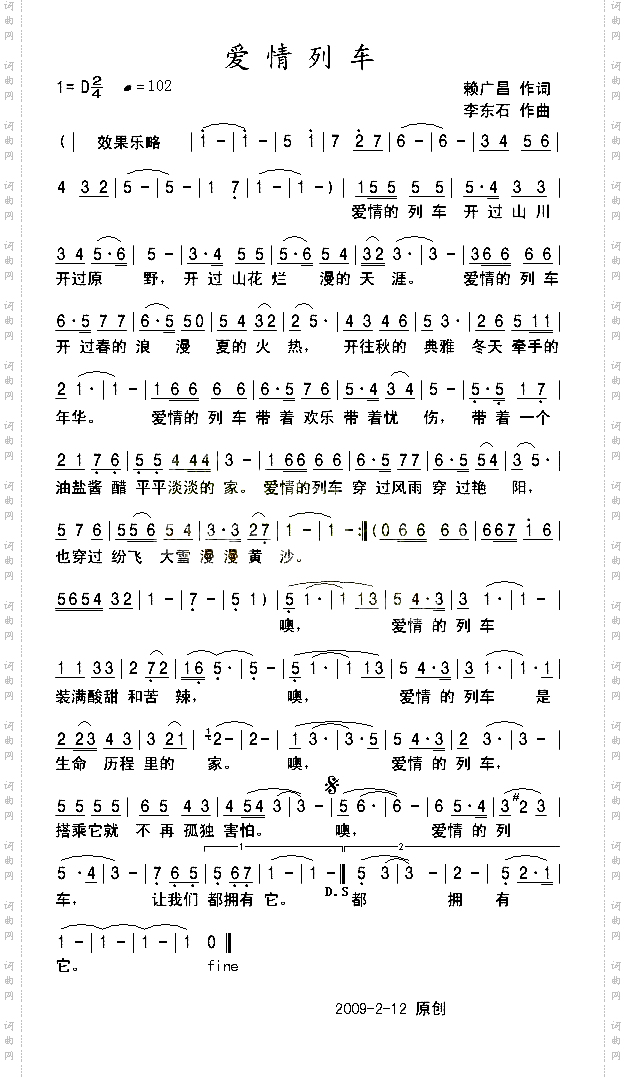 爱情列车
1=D2/4 ♩=102 赖广昌 作词
李东石 作曲
(| 效果乐略 |1-|1-|5 1|7 27|6-|6-|34 56|
4 32|5-|5-|1 7|1-|1-)|155 5 5|5·4 3 3|
爱情的 列 车 开 过 山 川
34 5·6|5-|3·4 55|5·6 54|32 3·|3-|366 66|
开过原 野，开 过 山花 烂 漫的 天 涯。 爱情的 列 车
6·5 77|6·5 50|54 32|2 5·|43 46|5 3·|26 511|
开 过春的 浪 漫 夏的 火 热， 开往秋的 典雅 冬天 牵手的
2 1·|1-|166 66|6·5 76|5·4 34|5-|5·5 17|
年华。 爱情的 列 车 带 着 欢乐 带 着忧 伤， 带 着 一个
21 76|55 444|3-|166 66|6·5 66|6·5 54|3 5·|
油盐酱 醋 平平淡淡的 家。 爱情的列车 穿 过风雨 穿 过艳 阳，
57 6|556 54|3·3 27|1-|1-:‖(066 66|667 16|
也穿过 纷飞 大雪 漫 漫 黄 沙。
5654 32|1-|7-|5 1)|5 1·|1 13|54·3|3 1·|1-|
噢， 爱情 的 列 车
11 33|2 72|16 5·|5-|5 1·|1 13|54·3|3 1·|1·1|
装满酸甜 和苦 辣， 噢， 爱情 的 列车 是
2 23 43|3 21|2-|2-|1 3·|3·5|54·3|2 3·|3-|
生命 历程 里的 家。 噢， 爱情 的 列 车，
55 55|65 43|454 3|3-|5 6·|6-|65·4|3 #23|
搭乘它就 不 再 孤独 害怕。 噢， 爱情 的 列
1 2
5·4|3-|7 65|5 67|1-|1-‖5 3|3-|2-|5 2·1|
车， 让我们 都拥有 它。 D.S 都 拥 有
1-|1-|1-|1 0‖
它。 fine
2009-2-12 原创
词曲网